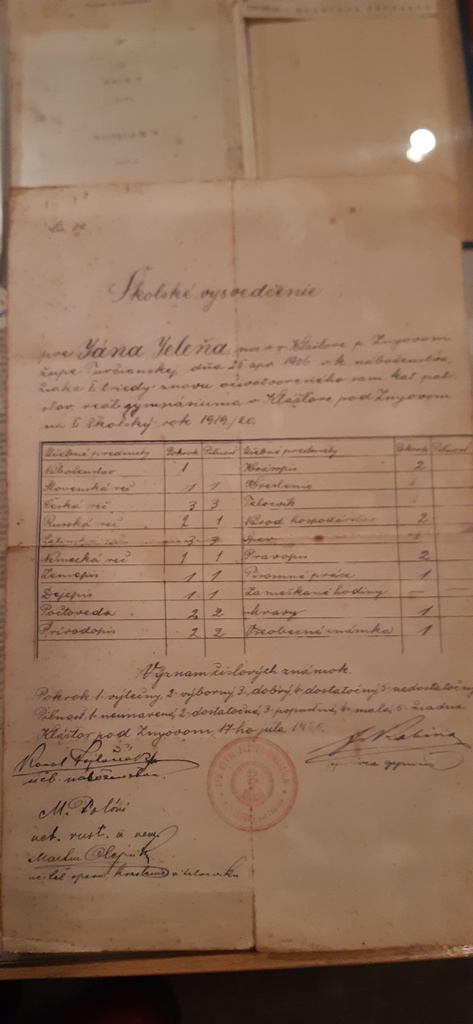 Školské vysvedčenie
pre Jána Jeleňa, nar. v Kláštore p. Znjovom
župe Turčianskej, dňa 25 apr. 1906 r.k. náboženstva,
žiaka I. triedy znovu oživotvoreného rím. kat. pat.
slov. reál. gymnásiuma v Kláštore pod Znjovom
na I. školský rok 1919/20.
Učebné predmety Pokrok Pilnosť Učebné predmety Pokrok Pilnosť
Náboženstvo 1 Krásopis 2
Slovenská reč 1 1 Kreslenie
Česká reč 3 3 Telocvik
Russká reč 2 1 Národ. hospodárstvo 2
Latinská reč 3 3 Spev
Nemecká reč 1 1 Pravopis 2
Zemepis 1 1 Písomné práce 1
Dejepis 1 1 Zameškané hodiny —
Počtoveda 2 2 Mravy 1
Prírodopis 2 2 Všeobecná známka 1
Význam číslových známok.
Pokrok 1. výtečný, 2. výborný, 3. dobrý, 4. dostatočný, 5. nedostatočný
Pilnosť 1. neunavená, 2. dostatočná, 3. popustná, 4. malá, 5. žiadna
Kláštor pod Znjovom, 17-ho júla
Karol
uč. náboženstva
M. Polóni
uč. rusk. a nem.
Martin Olejník
učiteľ spevu kreslenia a telocviku